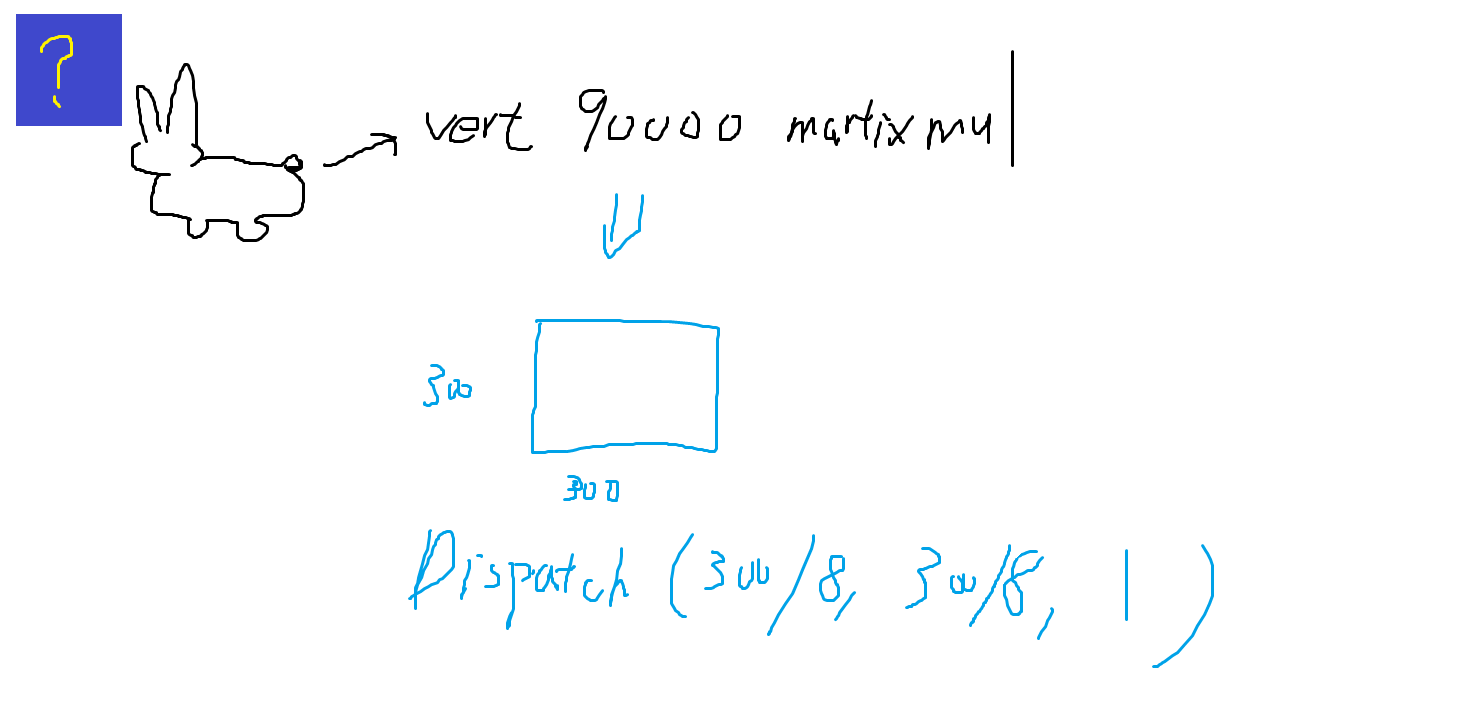 ?
vert 90000 martix mul
300
300
Dispatch (300/8, 300/8, 1)